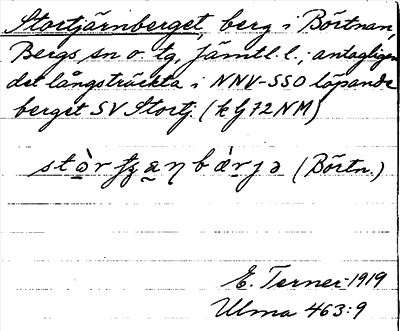 Stortjärnberget, berg i Börtnan,
Bergs sn o tg, Jämtl. l.; antagligen
det långsträckta i NNV-SSO löpande
berget SV Stortj. (k G 72 NM)
(Börtn.)
E. Terner 1919
Ulma 463:9